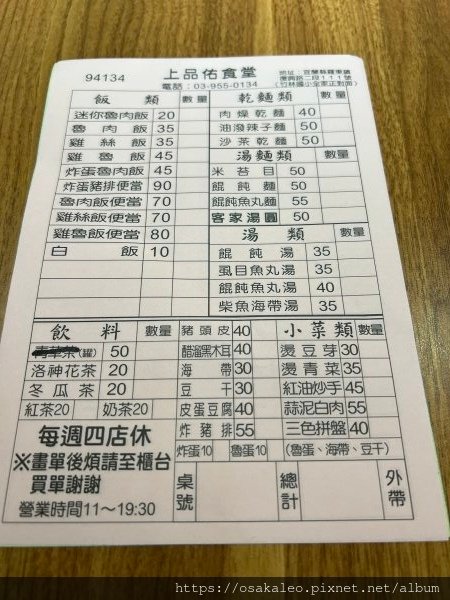 94134
上品佑食堂
電話：03-955-0134
地址：宜蘭縣羅東鎮
復興路二段111號
(竹林國小全家正對面)
飯 類 數量
迷你魯肉飯 20
魯肉飯 35
雞絲飯 35
雞魯飯 45
炸蛋魯肉飯 45
炸蛋豬排便當 90
魯肉飯便當 70
雞絲飯便當 70
雞魯飯便當 80
白飯 10
乾麵類 數量
肉燥乾麵 40
油潑辣子麵 50
沙茶乾麵 50
湯麵類 數量
米苔目 50
餛飩麵 50
餛飩魚丸麵 55
客家湯圓 50
湯 類 數量
餛飩湯 35
虱目魚丸湯 35
餛飩魚丸湯 40
柴魚海帶湯 35
飲 料 數量
青草茶(罐) 50
洛神花茶 20
冬瓜茶 20
紅茶20 奶茶20
豬頭皮 40
醋溜黑木耳 40
海帶 30
豆干 30
皮蛋豆腐 40
炸豬排 55
炸蛋10 魯蛋10
小菜類 數量
燙豆芽 30
燙青菜 35
紅油炒手 45
蒜泥白肉 55
三色拼盤 40
(魯蛋、海帶、豆干)
每週四店休
※畫單後煩請至櫃台
買單謝謝
營業時間11～19:30
桌號
總計
外帶
https://osakaleo.pixnet.net/album